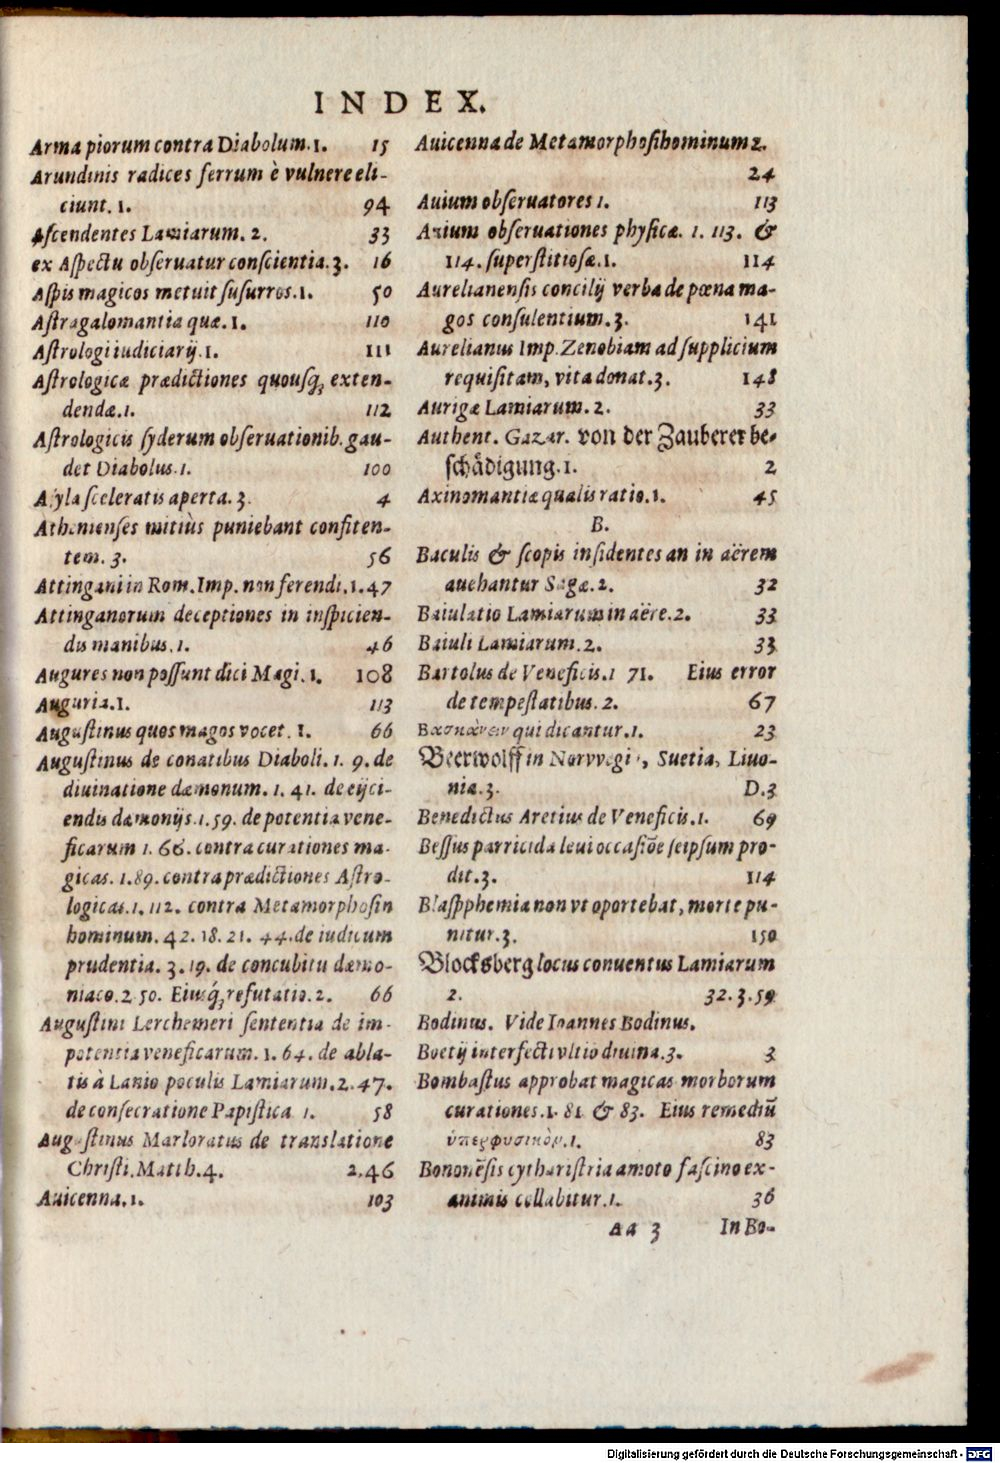 INDEX.
Arma piorum contra Diabolum. 1. 15
Arundinis radices ferrum è vulnere eli-
ciunt. 1. 94
Ascendentes Lamiarum. 2. 33
ex Aſpectu obſeruatur conſcientia. 3. 16
Aſpis magicos metuit ſuſurros. 1. 50
Aſtragalomantia quæ. 1. 110
Aſtrologi iudiciarij. 1. 111
Aſtrologicæ prædictiones quouſq; exten-
dendæ. 1. 112
Aſtrologicis ſyderum obſeruationib. gau-
det Diabolus. 1. 100
Aſyla ſceleratis aperta. 3. 4
Athenienſes mitiùs puniebant confiten-
tem. 3. 56
Attingani in Rom. Imp. non ferendi. 1. 47
Attinganorum deceptiones in inſpicien-
dis manibus. 1. 46
Augures non poſſunt dici Magi. 1. 108
Auguria. 1. 113
Auguſtinus quos magos vocet. 1. 66
Auguſtinus de conatibus Diaboli. 1. 9. de
diuinatione dæmonum. 1. 41. de eijci-
endis dæmonijs. 1. 59. de potentia vene-
ficarum 1. 66. contra curationes ma-
gicas. 1. 89. contra prædictiones Aſtro-
logicas. 1. 112. contra Metamorphoſin
hominum. 42. 18. 21. 44. de iudicum
prudentia. 3. 19. de concubitu dæmo-
niaco. 2 50. Eiusq́; refutatio. 2. 66
Auguſtini Lerchemeri ſententia de im-
potentia veneficarum. 1. 64. de abla-
tis à Lanio poculis Lamiarum. 2. 47.
de conſecratione Papiſtica 1. 58
Auguſtinus Marloratus de translatione
Chriſti. Matth. 4. 2. 46
Auicenna. 1. 103
Auicenna de Metamorphoſi hominum 2.
24
Auium obſeruatores 1. 113
Auium obſeruationes phyſicæ. 1. 113. &
114. ſuperſtitioſæ. 1. 114
Aurelianenſis concilij verba de pœna ma-
gos conſulentium. 3. 141
Aurelianus Imp. Zenobiam ad ſupplicium
requiſitam, vita donat. 3. 148
Aurigæ Lamiarum. 2. 33
Authent. Gazar. von der Zauberer be-
ſchådigung. 1. 2
Axinomantiæ qualis ratio. 1. 45
B.
Baculis & ſcopis inſidentes an in aërem
auehantur Sagæ. 2. 32
Baiulatio Lamiarum in aëre. 2. 33
Baiuli Lamiarum. 2. 33
Bartolus de Veneficis. 1 71. Eius error
de tempeſtatibus. 2. 67
qui dicantur. 1. 23
Beerwolff in Norvvegia, Suetia, Liuo-
nia. 3. D. 3
Benedictus Aretius de Veneficis. 1. 69
Beſſus parricida leui occaſiōe ſeipſum pro-
dit. 3. 114
Blaſpphemia non vt oportebat, morte pu-
nitur. 3. 150
Blocksberg locus conuentus Lamiarum
2. 32. 3. 59
Bodinus. Vide Ioannes Bodinus.
Boetij interfecti vltio diuina. 3. 3
Bombaſtus approbat magicas morborum
curationes. 1. 81 & 83. Eius remediū
ὑπερφυσικὸν. 1. 83
Bononēſis cythariſtria amoto faſcino ex-
animis collabitur. 1. 36
Aa 3 In Bo-
Digitalisierung gefördert durch die Deutsche Forschungsgemeinschaft - DFG